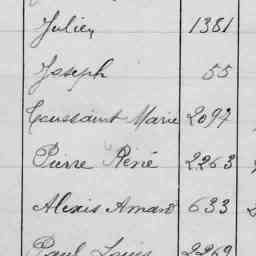 Julien 1381
Joseph 55
Toussaint Marie 2097
Pierre René 2263
Alexis Amand 633
Paul Louis 2269